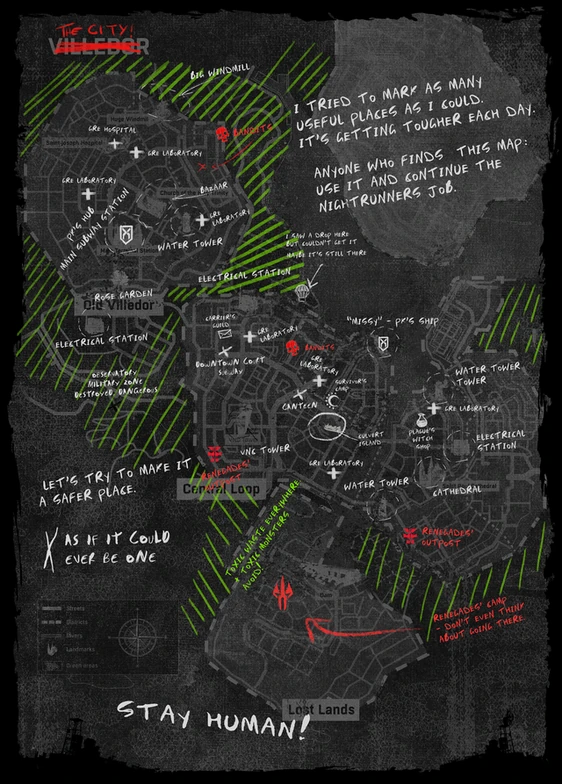 THE CITY!
VILLEDOR
BIG WINDMILL
I TRIED TO MARK AS MANY
USEFUL PLACES AS I COULD.
IT'S GETTING TOUGHER EACH DAY.
ANYONE WHO FINDS THIS MAP:
USE IT AND CONTINUE THE
NIGHTRUNNERS JOB.
Huge Windmill
GRE HOSPITAL
BANDITS
Saint Joseph Hospital
GRE LABORATORY
GRE LABORATORY
BAZAAR
PK'S HUB
MAIN SUBWAY STATION
GRE
LABORATORY
WATER TOWER
I SAW A DROP HERE
BUT COULDN'T GET IT
MAYBE IT'S STILL THERE
ELECTRICAL STATION
ROSE GARDEN
Old Villedor
ELECTRICAL STATION
CARRIER'S
GUILD
GRE
LABORATORY
DOWNTOWN COURT
SUBWAY
BANDITS
"MISSY" - PK'S SHIP
GRE
LABORATORY
OBSERVATORY
MILITARY ZONE
DESTROYED, DANGEROUS
SURVIVOR'S
CAMP
CANTEEN
WATER TOWER
TOWER
GRE LABORATORY
PLAGUE'S
WITCH
SHOP
CULVERT
ISLAND
ELECTRICAL
STATION
VNC TOWER
GRE LABORATORY
WATER TOWER
CATHEDRAL
RENEGADES'
Central Loop
LET'S TRY TO MAKE IT
A SAFER PLACE.
AS IF IT COULD
EVER BE ONE
TOXIC WASTE EVERYWHERE
+ TOXIC MONSTERS
AVOID!
RENEGADES'
OUTPOST
Dam
RENEGADES' CAMP
- DON'T EVEN THINK
ABOUT GOING THERE
Streets
Districts
Rivers
Landmarks
Green areas
Lost Lands
STAY HUMAN!